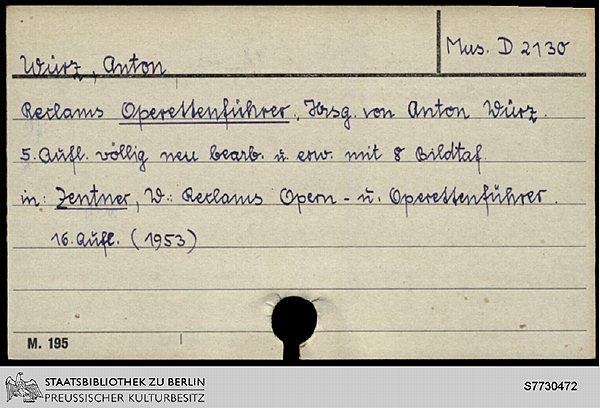 Mus. D 2130
Würz, Anton
Reclams Operettenführer, Hrsg. von Anton Würz.
5. Aufl. völlig neu bearb. u. erw. mit 8 Bildtaf
in: Zentner, W.: Reclams Opern- u. Operettenführer.
16. Aufl. (1953)
M. 195
STAATSBIBLIOTHEK ZU BERLIN
PREUSSISCHER KULTURBESITZ
S7730472